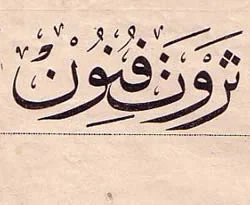 ثروت فنون